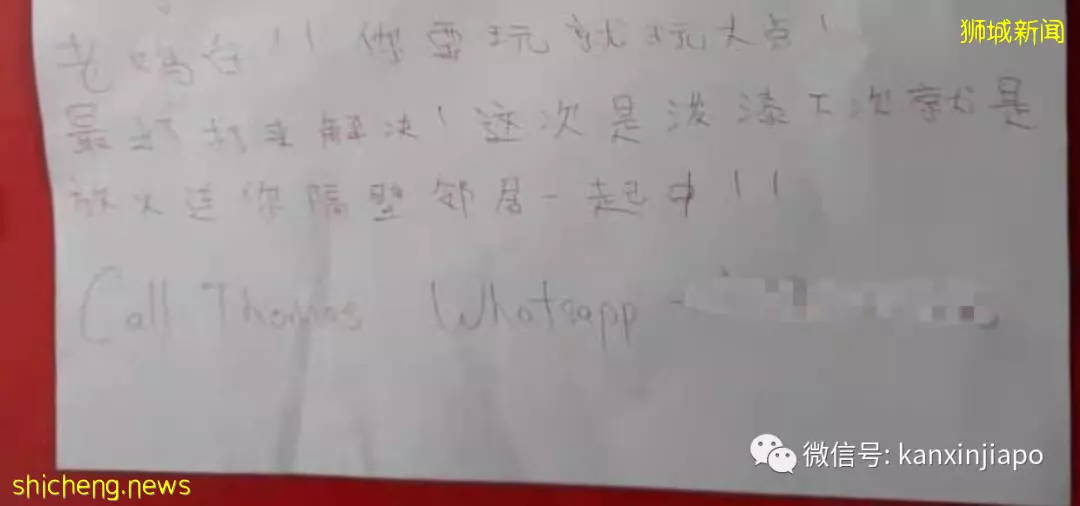 狮城新闻
老 白!! 你要玩就玩大点!
最好打来解决!这次是泼漆下次就是
放火连你隔壁邻居一起中!!
Call Thomas Whatsapp -
微信号: kanxinjiapo
shicheng.news